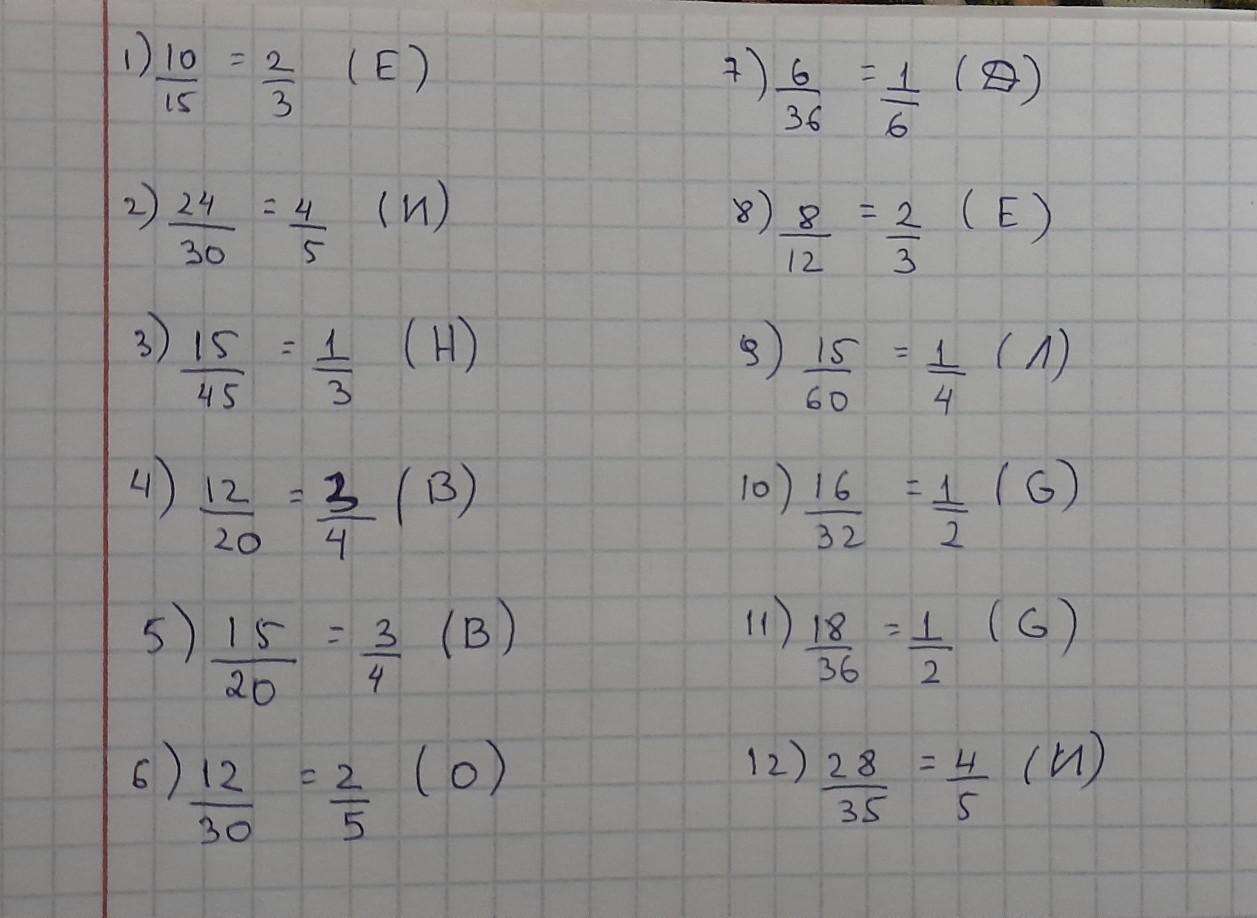 1) 10/15 = 2/3 (E)
2) 24/30 = 4/5 (И)
3) 15/45 = 1/3 (H)
4) 12/20 = 3/4 (B)
5) 15/20 = 3/4 (B)
6) 12/30 = 2/5 (O)
7) 6/36 = 1/6
8) 8/12 = 2/3 (E)
9) 15/60 = 1/4 (Л)
10) 16/32 = 1/2 (G)
11) 18/36 = 1/2 (G)
12) 28/35 = 4/5 (И)